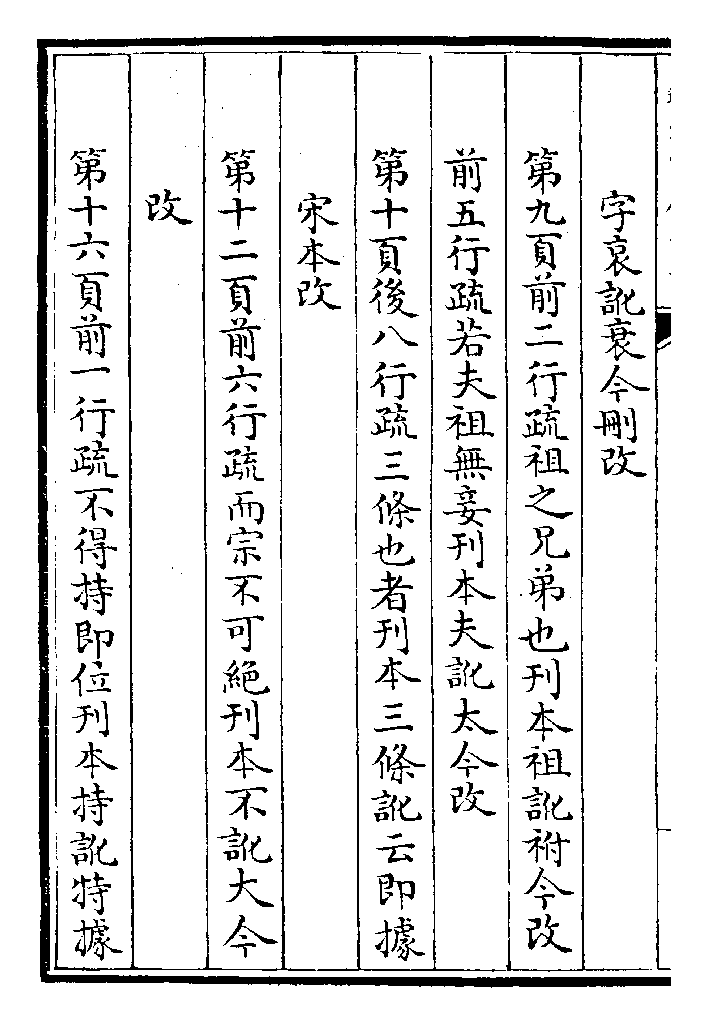 字哀訛衰今刪改
第九頁前二行疏祖之兄弟也刊本祖訛祔今改
前五行疏若夫祖無妾刊本夫訛太今改
第十頁後八行疏三條也者刊本三條訛云即據
宋本改
第十二頁前六行疏而宗不可絕刊本不訛大今
改
第十六頁前一行疏不得持即位刊本持訛特據